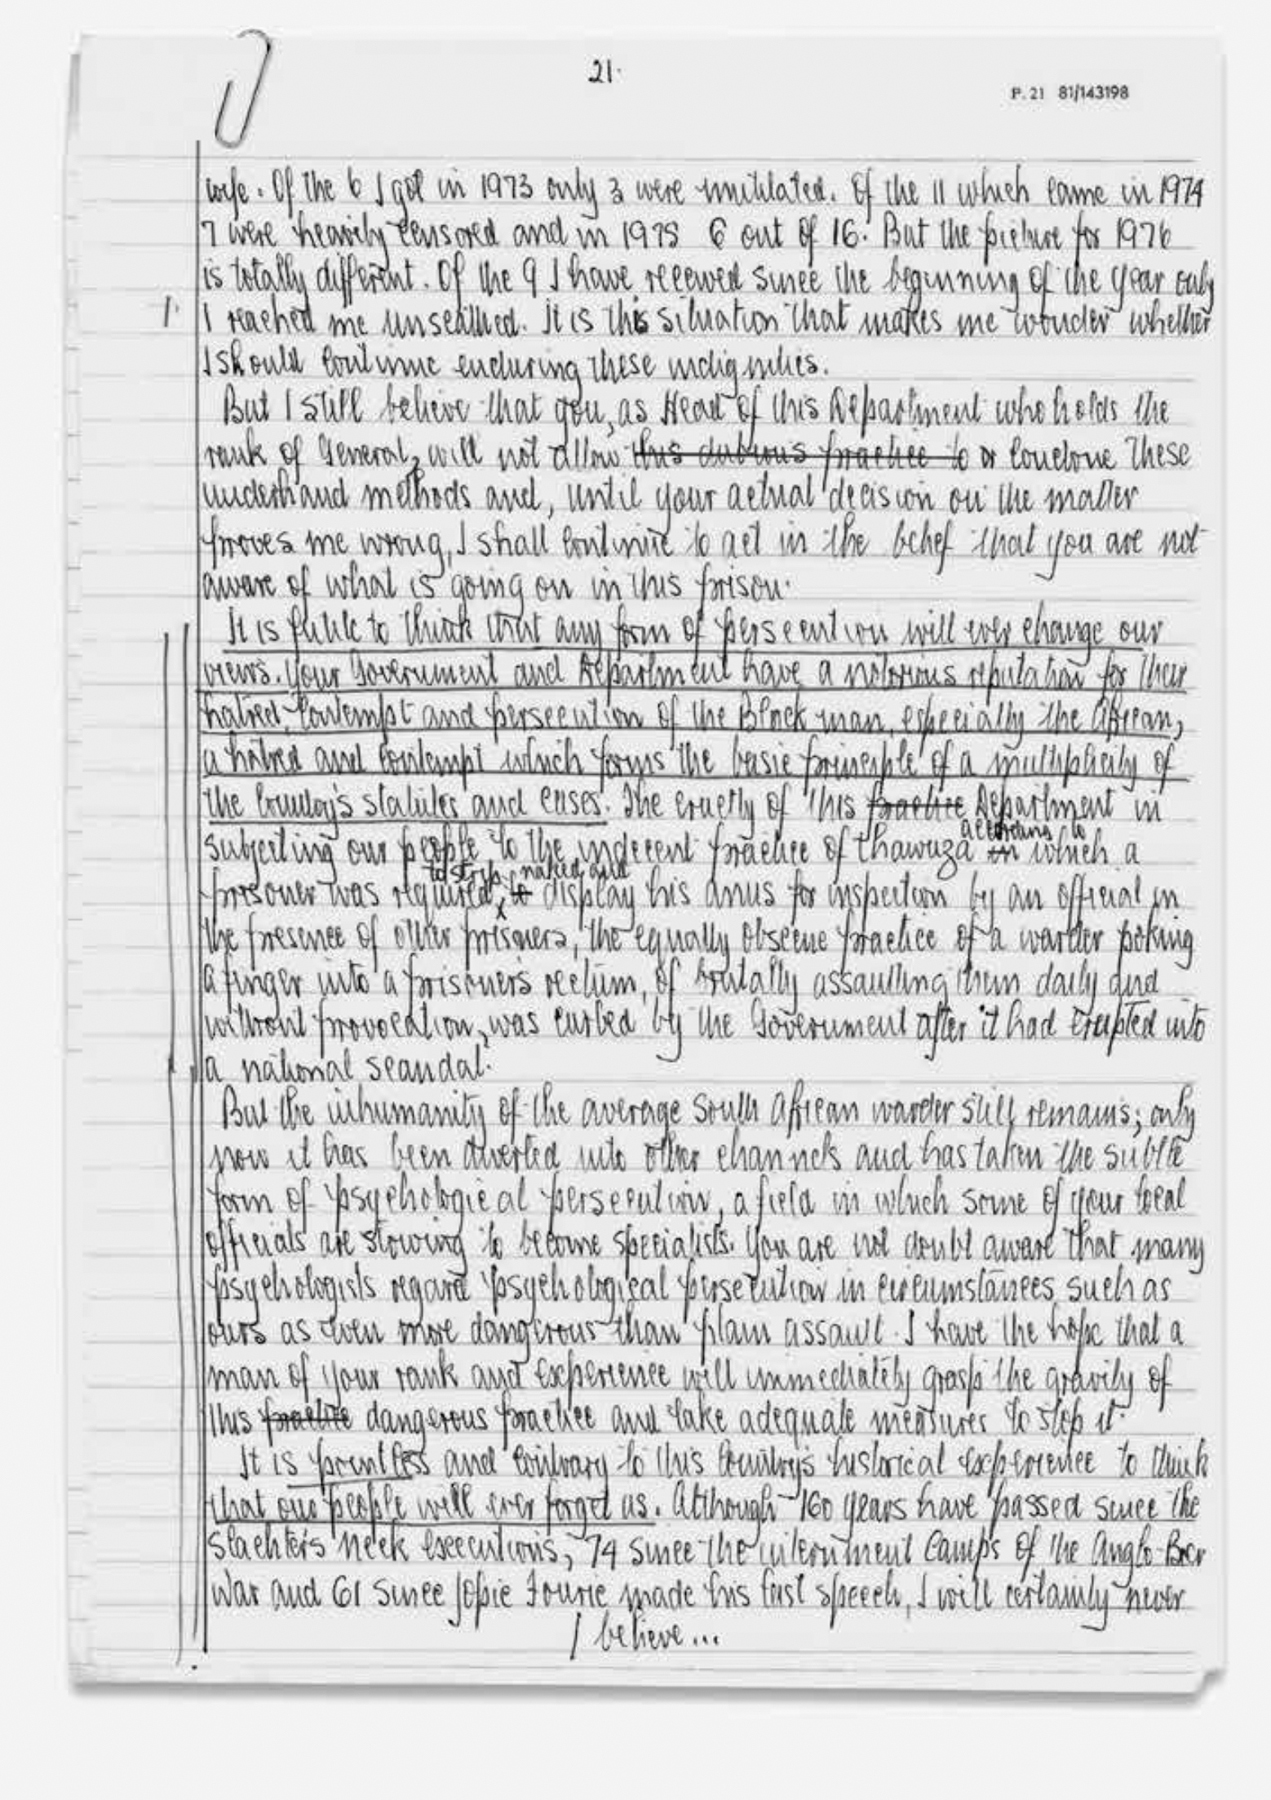 21.
P. 21 81/143198
wife. Of the 6 I got in 1973 only 3 were mutilated. Of the 11 which came in 1974
7 were heavily censored and in 1975 6 out of 16. But the picture for 1976
is totally different. Of the 9 I have received since the beginning of the year only
1 reached me unscathed. It is this situation that makes me wonder whether
I should continue enduring these indignities.
But I still believe that you, as Head of this Department who holds the
rank of General, will not allow this dubious practice to or condone these
underhand methods and, until your actual decision on the matter
proves me wrong, I shall continue to act in the belief that you are not
aware of what is going on in this prison.
It is futile to think that any form of persecution will ever change our
views. Your Government and Department have a notorious reputation for their
hatred, contempt and persecution of the Black man, especially the African,
a hatred and contempt which forms the basic principle of a multiplicity of
the country's statutes and cases. The cruelty of this practice Department in
subjecting our people to the indecent practice of thawuza in according to which a
prisoner was required, to to strip naked and display his anus for inspection by an official in
the presence of other prisoners, the equally obscene practice of a warder poking
a finger into a prisoner's rectum, of brutally assaulting them daily and
without provocation, was curbed by the Government after it had erupted into
a national scandal.
But the inhumanity of the average South African warder still remains; only
now it has been diverted into other channels and has taken the subtle
form of psychological persecution, a field in which some of your local
officials are striving to become specialists. You are not doubt aware that many
psychologists regard psychological persecution in circumstances such as
ours as even more dangerous than plain assault. I have the hope that a
man of your rank and experience will immediately grasp the gravity of
this practice dangerous practice and take adequate measures to stop it.
It is pointless and contrary to this country's historical experience to think
that our people will ever forget us. Although 160 years have passed since the
Slachters Neck executions, 74 since the internment camps of the Anglo-Boer
War and 61 since Jopie Fourie made his last speech, I will certainly never
/ believe...